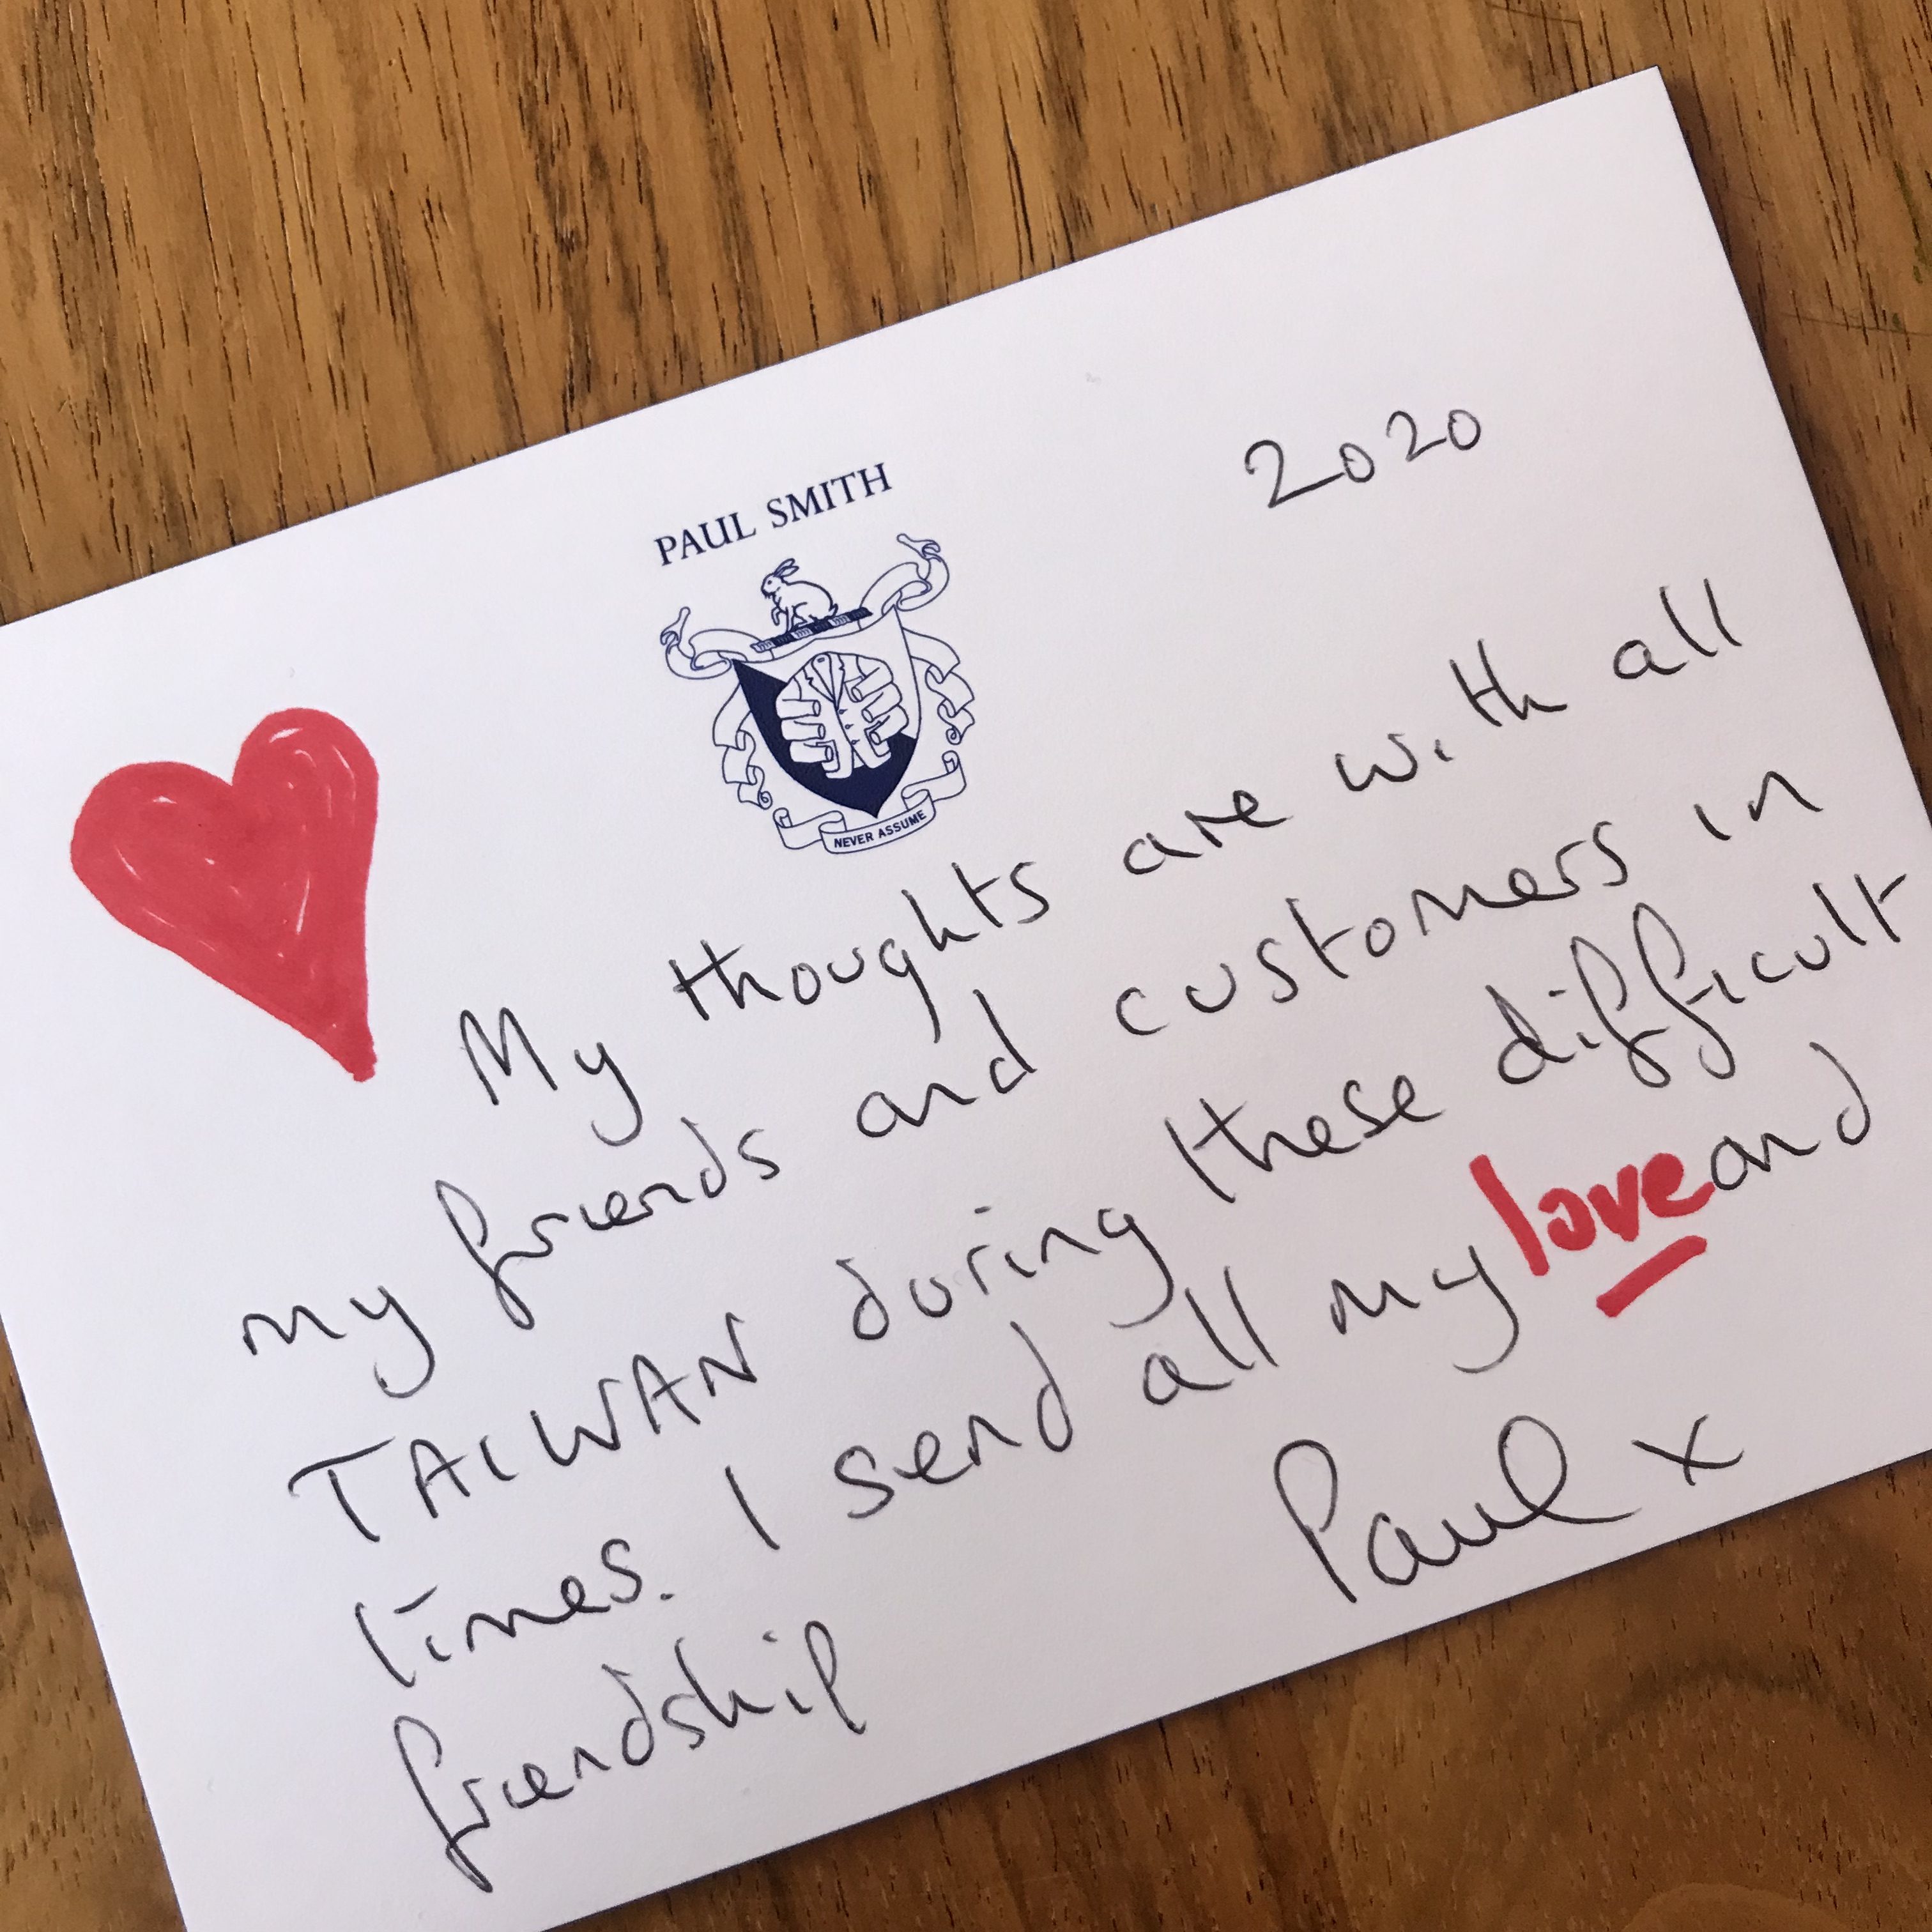 PAUL SMITH
NEVER ASSUME
2020
My thoughts are with all
my friends and customers in
TAIWAN during these difficult
times. I send all my love and
friendship
Paul x